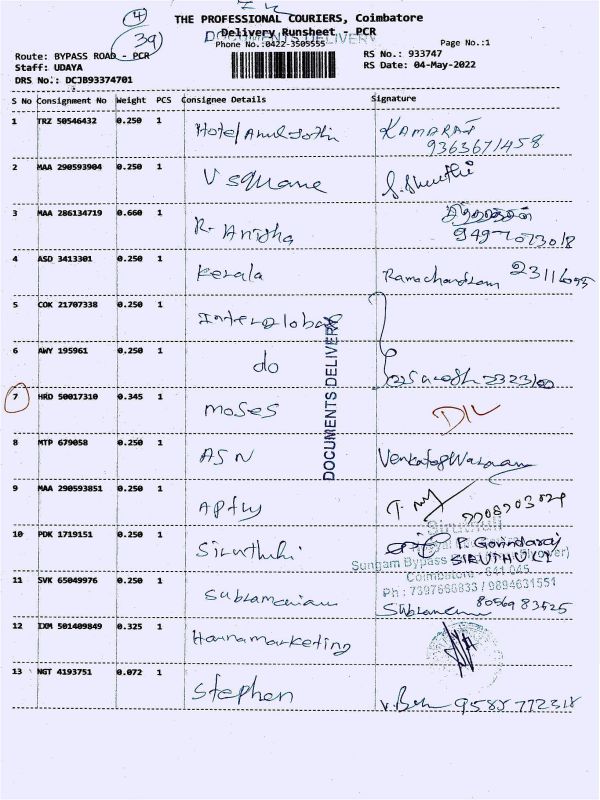 4
39
THE PROFESSIONAL COURIERS, Coimbatore
DOCUMENTS DELIVERY
Delivery Runsheet - PCR
Phone No.:0422-3505555
Page No.:1
Route: BYPASS ROAD - PCR
RS No.: 933747
Staff: UDAYA
RS Date: 04-May-2022
DRS No.: DCJB93374701
S No Consignment No Weight PCS Consignee Details Signature
1 TRZ 50546432 0.250 1 Hotel Amul Jothi KAMARAJ
9363671458
2 MAA 290593904 0.250 1 V square S. Shruthi
3 MAA 286134719 0.660 1 R. Anisha
4 ASD 3413301 0.250 1 Kerala Ramachandran
5 COK 21707338 0.250 1 Interglobal
6 AWY 195961 0.250 1 do Suresh
DOCUMENTS DELIVERY
7 HRD 50017310 0.345 1 moses DIL
8 MTP 679058 0.250 1 ASN Venkateswaran
9 MAA 290593851 0.250 1
10 PDK 1719151 0.250 1 Siruthuli P. Govindaraj
SIRUTHULI
Siruthuli
Sungam Bypass
Coimbatore - 641 045
Ph : 7397666833 / 9894631551
11 SVK 65049976 0.250 1 Subramaniam 8056983525
12 IXM 501409849 0.325 1 Hannamarketing
13 NGT 4193751 0.072 1 Stephen